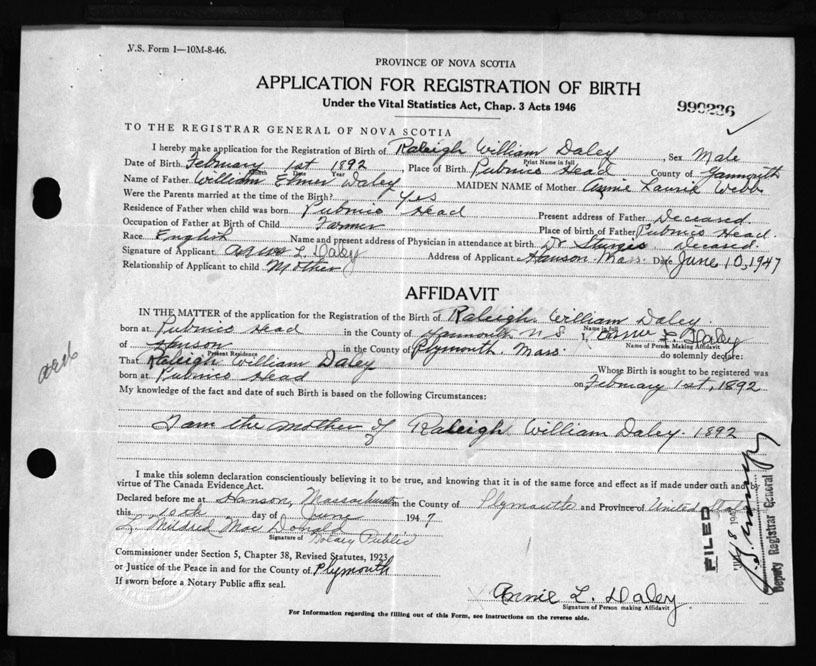 V.S. Form 1—10M-8-46.
PROVINCE OF NOVA SCOTIA
APPLICATION FOR REGISTRATION OF BIRTH
Under the Vital Statistics Act, Chap. 3 Acts 1946
990226
TO THE REGISTRAR GENERAL OF NOVA SCOTIA
I hereby make application for the Registration of Birth of Raleigh William Daley Sex Male
Print Name in full
Date of Birth February 1st 1892, Place of Birth Pubnico Head County of Yarmouth
Month Date Year
Name of Father William Elmer Daley MAIDEN NAME of Mother Annie Laurie Webb
Were the Parents married at the time of the Birth? Yes
Residence of Father when child was born Pubnico Head Present address of Father Deceased.
Occupation of Father at Birth of Child Farmer Place of birth of Father Pubnico Head.
Race English Name and present address of Physician in attendance at birth Dr Sturgis Deceased.
Signature of Applicant Annie L. Daley Address of Applicant Hanson Mass. Date June 10, 1947
Relationship of Applicant to child Mother
AFFIDAVIT
IN THE MATTER of the application for the Registration of the Birth of Raleigh William Daley.
Name in full
born at Pubnico Head in the County of Yarmouth N.S. I, Annie L. Daley
Name of Person Making Affidavit
of Hanson in the County of Plymouth. Mass. do solemnly declare:
Present Residence
That Raleigh William Daley Whose Birth is sought to be registered was
born at Pubnico Head on February 1st, 1892
My knowledge of the fact and date of such Birth is based on the following Circumstances:
I am the mother of Raleigh William Daley. 1892
I make this solemn declaration conscientiously believing it to be true, and knowing that it is of the same force and effect as if made under oath and by
virtue of The Canada Evidence Act.
Declared before me at Hanson, Massachusetts in the County of Plymouth and Province of United States
this 10th day of June 1947
L. Mildred Mac Donald
Signature of Notary Public
Commissioner under Section 5, Chapter 38, Revised Statutes, 1923,
or Justice of the Peace in and for the County of Plymouth
If sworn before a Notary Public affix seal.
Annie L. Daley
Signature of Person making Affidavit
For Information regarding the filling out of this Form, see Instructions on the reverse side.
FILED
Deputy Registrar General